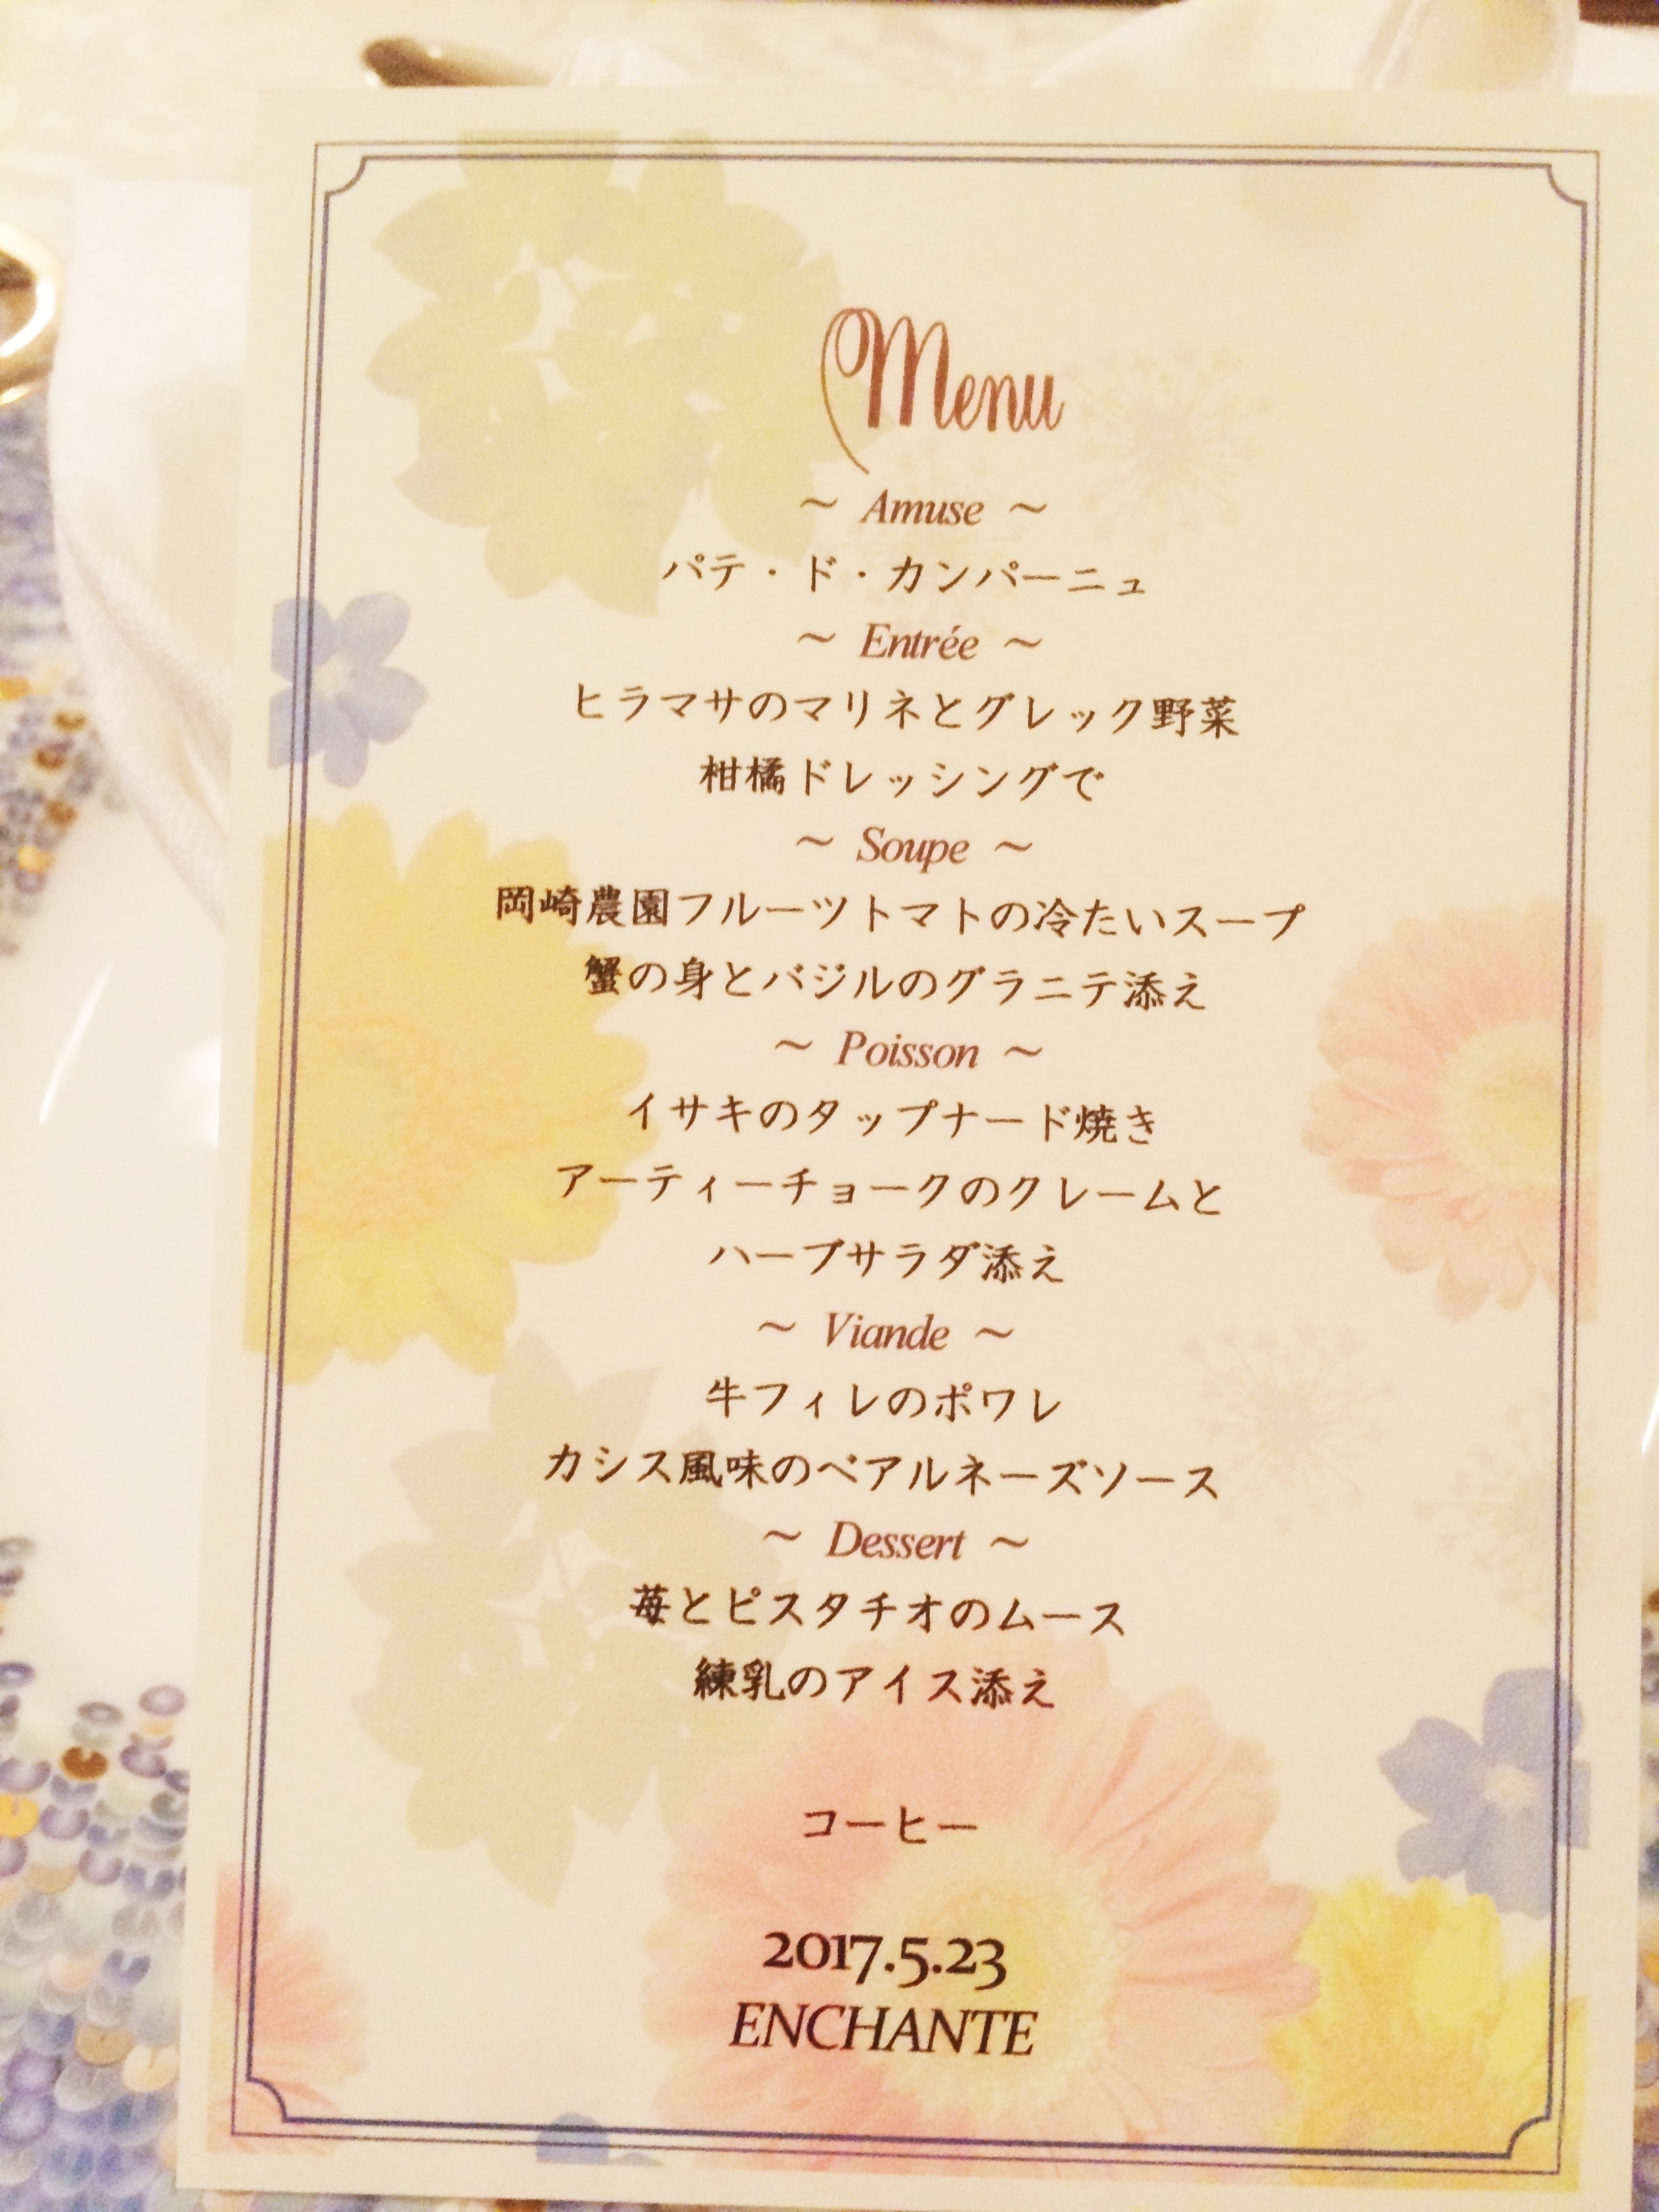 Menu
～ Amuse ～
パテ・ド・カンパーニュ
～ Entrée ～
ヒラマサのマリネとグレック野菜
柑橘ドレッシングで
～ Soupe ～
岡崎農園フルーツトマトの冷たいスープ
蟹の身とバジルのグラニテ添え
～ Poisson ～
イサキのタップナード焼き
アーティーチョークのクレームと
ハーブサラダ添え
～ Viande ～
牛フィレのポワレ
カシス風味のベアルネーズソース
～ Dessert ～
苺とピスタチオのムース
練乳のアイス添え
コーヒー
2017.5.23
ENCHANTE